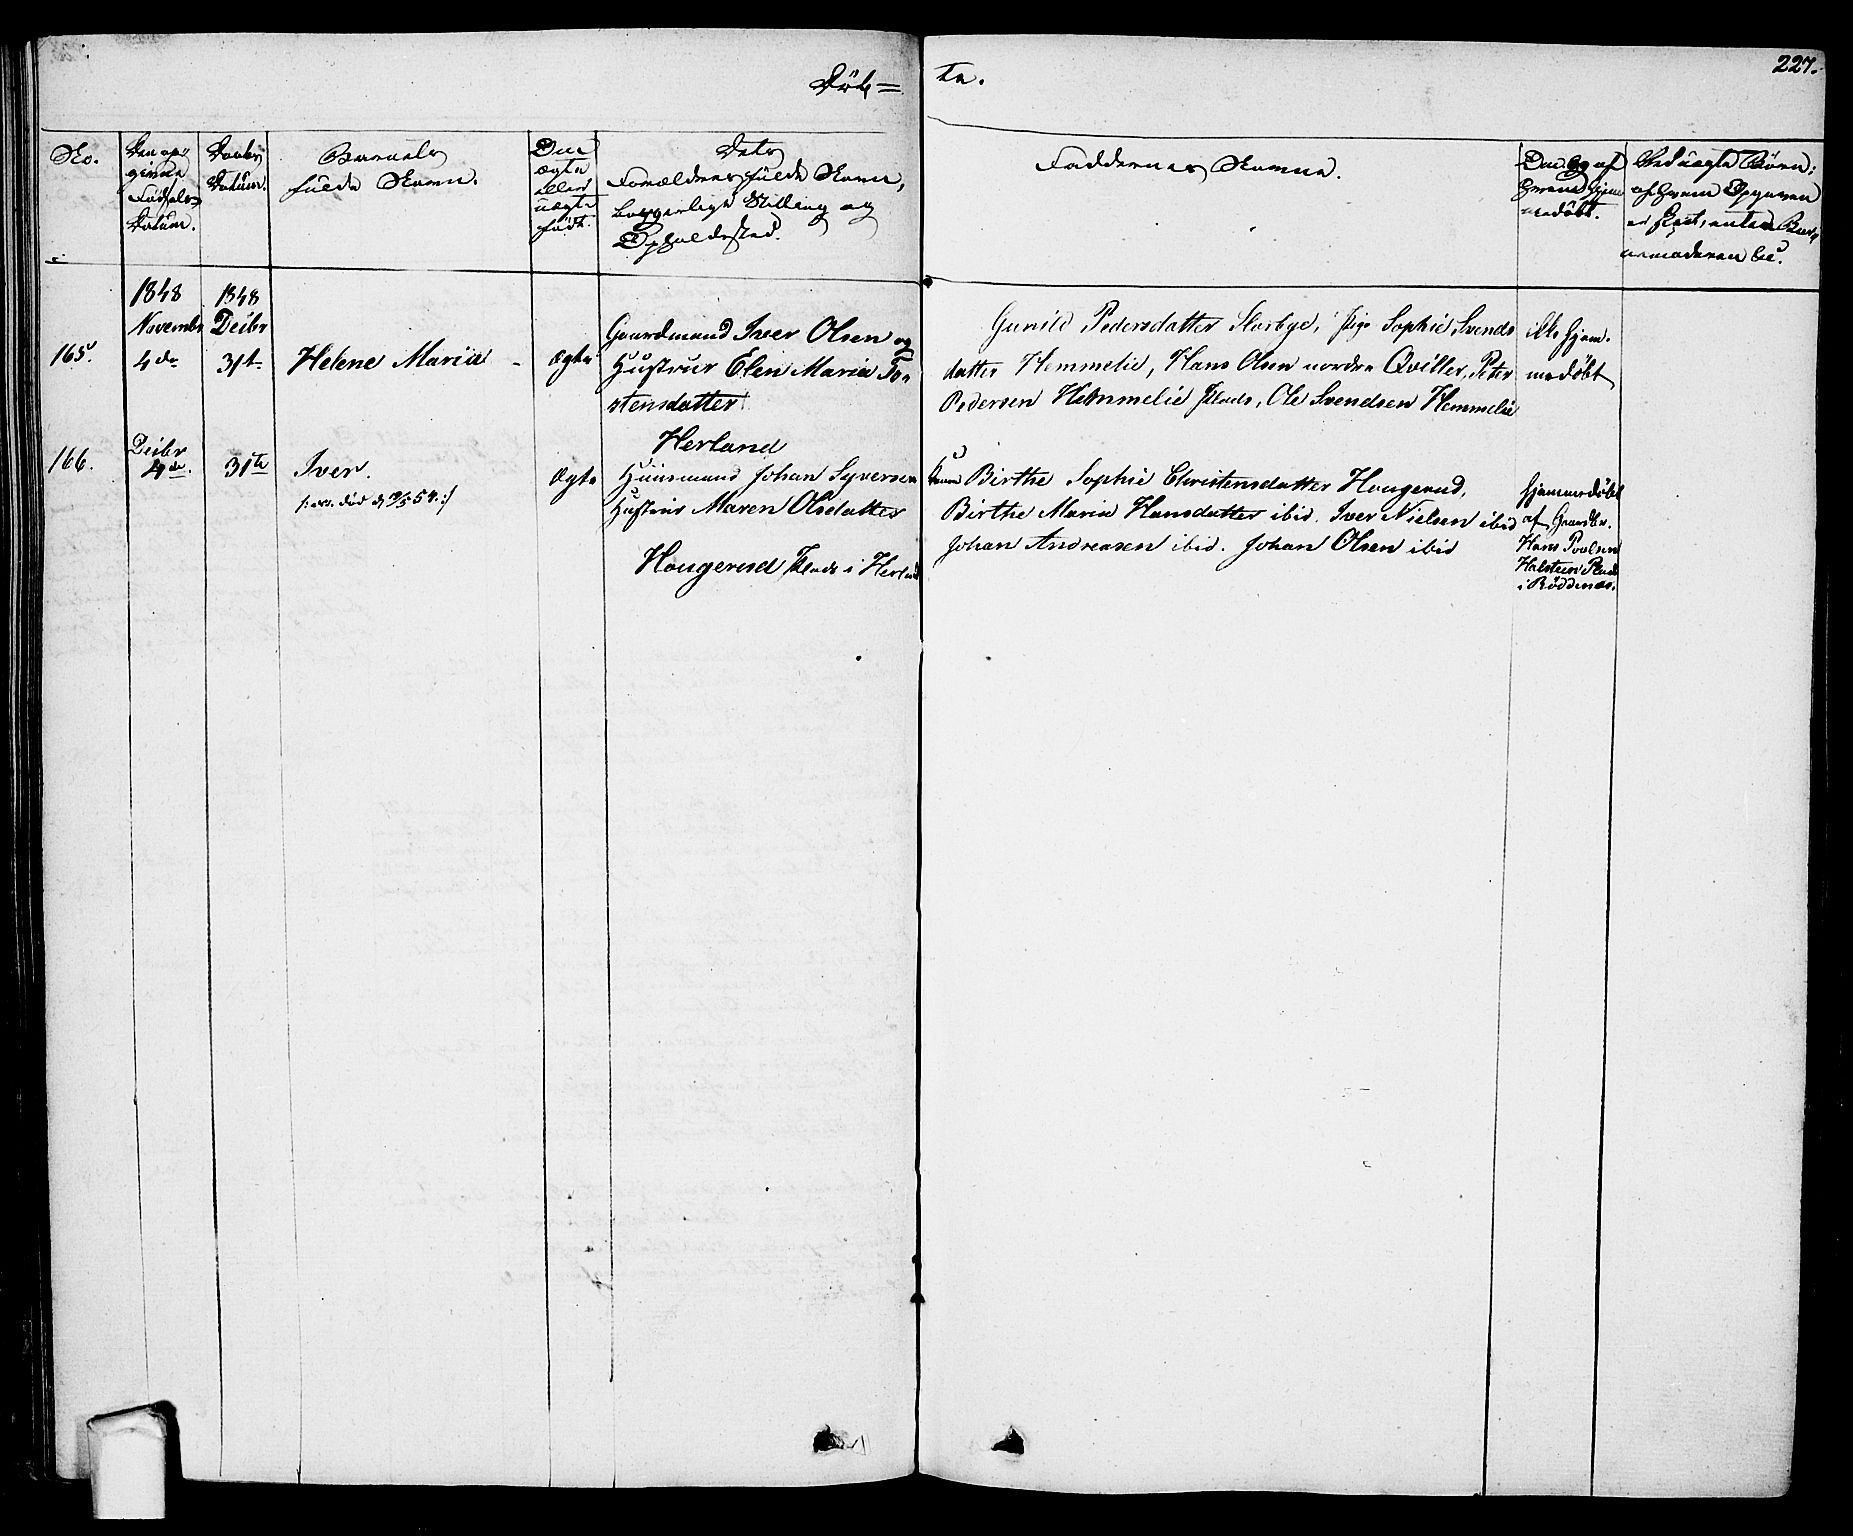 Döb=
te.
227.
No.
Den opgivne Fødsels Datum.
Daabs Datum.
Barnets fulde Navn.
Om ægte eller uægte født.
Dets Forældres fulde Navn, borgerlige Stilling og Opholdssted.
Faddernes Navne.
Om og af hvem hjemmedøbt.
Ved uægte Børn: af hvem Opgaven er skeet, enten Barnemoderen
1848
1848
Novembr
Decbr
165.
4de
31te
Helene Maria
Ægte
Gaardmand Iver Olsen og
Hustrue Elen Maria To-
stensdatter
Herland
Gunild Pedersdatter Skarbye, Pige Sophie Svends
datter Hemmelie, Hans Olsen nordre Qviller, Peter
Pedersen Hemmelie Plads, Ole Svendsen Hemmelie
ikke hjem-
medøbt
166.
Decbr
4de
31te
Iver.
død d 54 :/
Ægte
Huusmand Johan Syversen
Hustrue Maren Olsdatter
Hougerud Plads i Herland
Birthe Sophie Christensdatter Hougerud,
Birthe Maria Hansdatter ibid. Iver Nielsen ibid
Johan Andreasen ibid. Johan Olsen ibid
hjemmedøbt
af
Hans Poulsen
Holstein Plads
i Röddenæs.